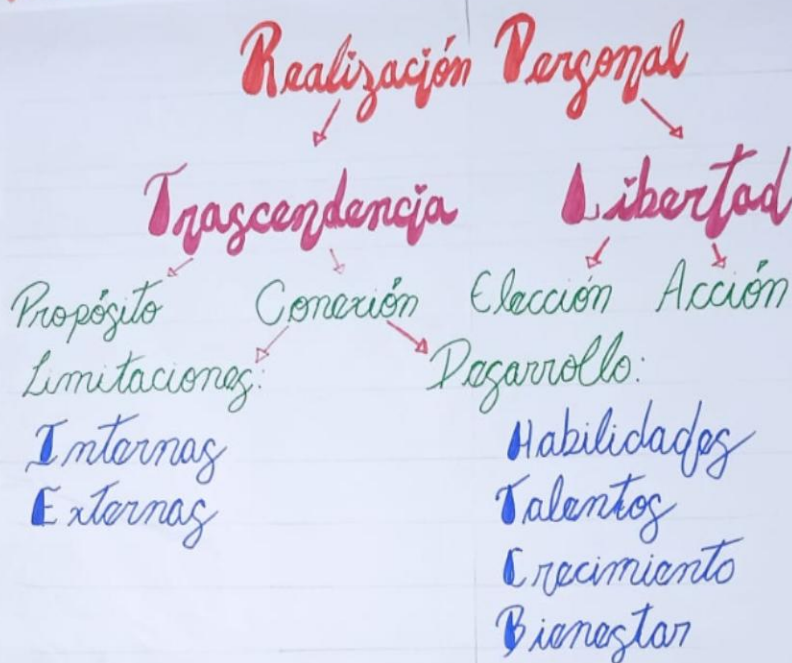 Realización Personal
Trascendencia Libertad
Propósito Conexión Elección Acción
Limitaciones: Desarrollo:
Internas Habilidades
Externas Talentos
Crecimiento
Bienestar